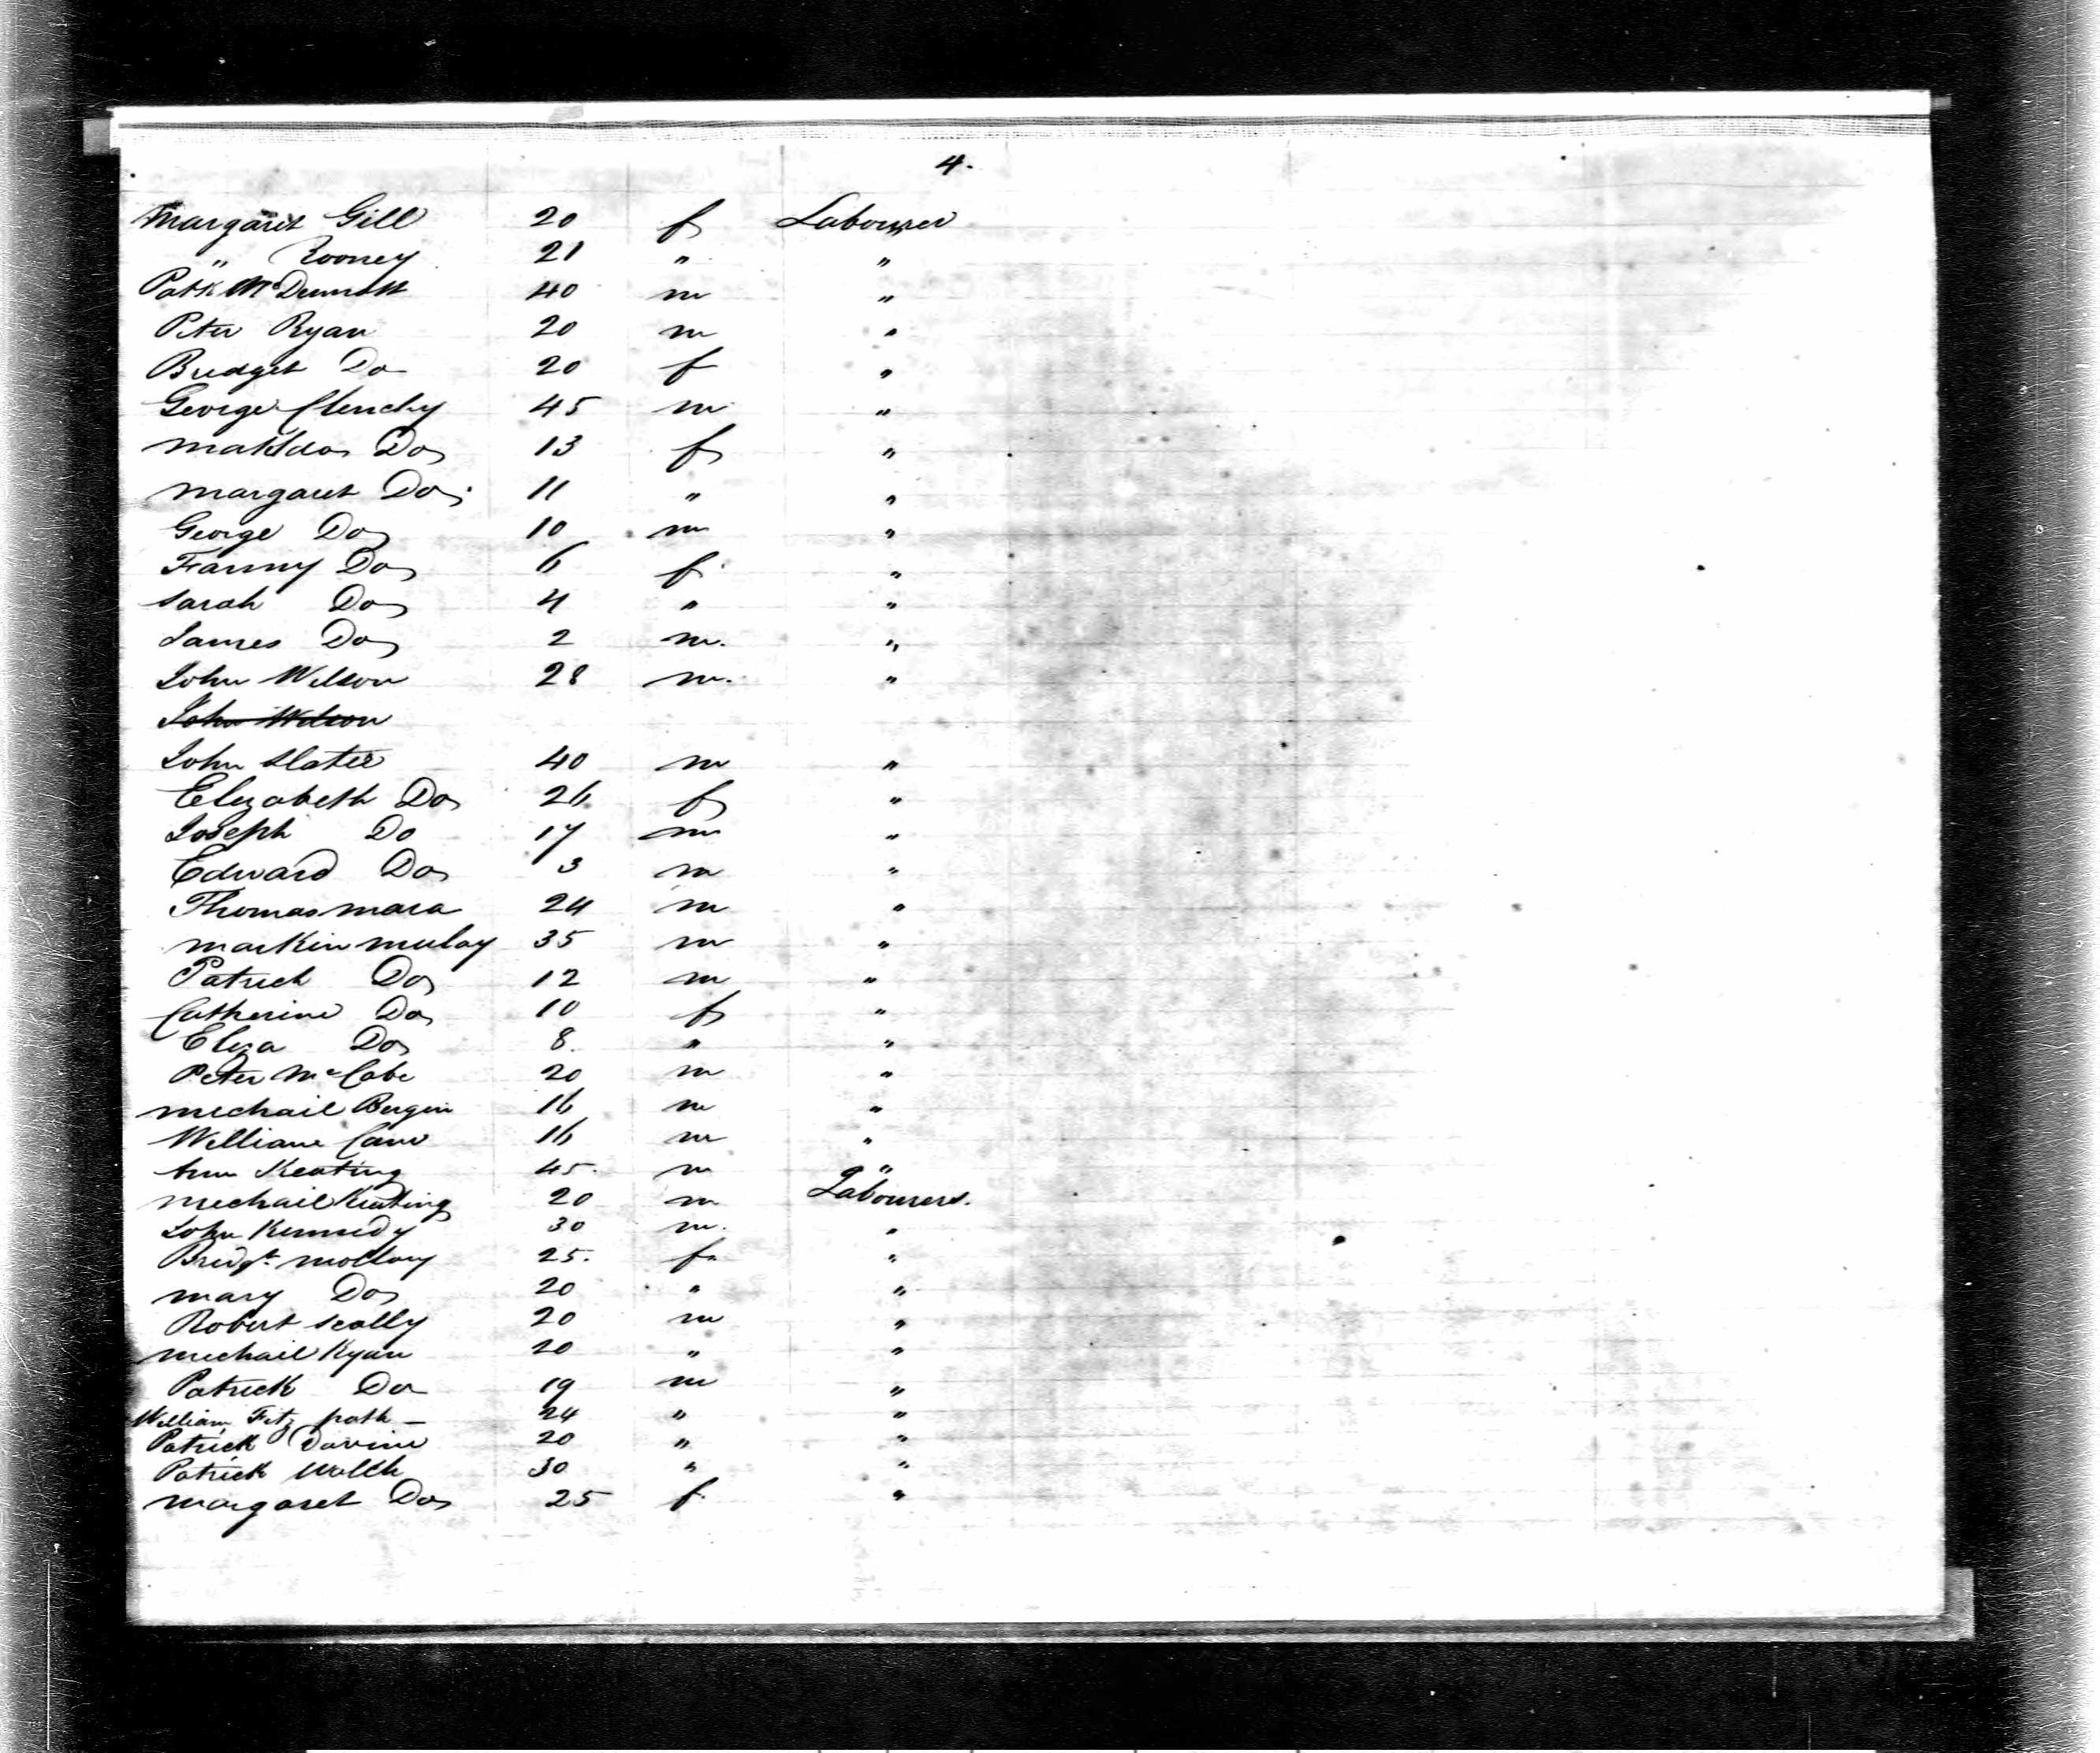 4.
Margaret Gill 20 f Labourer
" Rooney 21 " "
Patk McDermott 40 m "
Peter Ryan 20 m "
Bridget Do 20 f "
George Clenchy 45 m "
Matilda Do 13 f "
Margaret Do 11 " "
George Do 10 m "
Fanny Do 6 f "
Sarah Do 4 " "
James Do 2 m. "
John Wilson 28 m. "
John Wilson
John Slater 40 m "
Elizabeth Do 26 f "
Joseph Do 17 m "
Edward Do 3 m "
Thomas Mara 24 m "
Martin Mulay 35 m "
Patrick Do 12 m "
Catherine Do 10 f "
Eliza Do 8. " "
Peter McCabe 20 m "
Michail Bergin 16 m "
William 16 m "
Ann Keating 45. m "
Michail Keating 20 m Labourers.
John Kennedy 30 m. "
Bridgt Molloy 25. f "
Mary Do 20 " "
Robert Scally 20 m "
Michail Ryan 20 " "
Patrick Do 19 m "
William Fitz path 24 " "
Patrick Davine 20 " "
Patrick Walch 30 " "
Margaret Do 25 f "